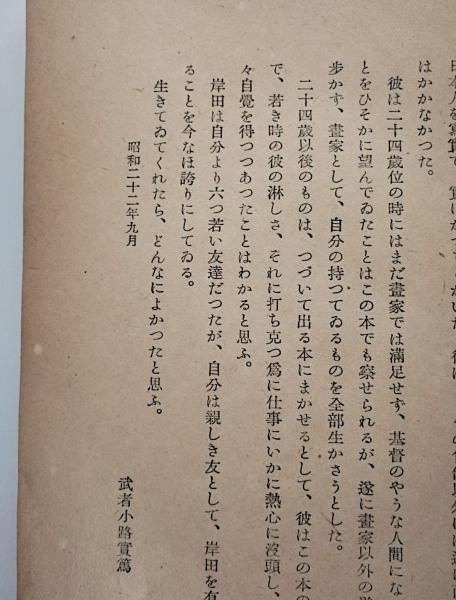 はかかなかつた。
彼は二十四歳位の時にはまだ畫家では滿足せず、基督のやうな人間にな
とをひそかに望んでゐたことはこの本でも察せられるが、遂に畫家以外の
歩かず、畫家として、自分の持つてゐるものを全部生かさうとした。
二十四歳以後のものは、つづいて出る本にまかせるとして、彼はこの本の
で、若き時の彼の淋しさ、それに打ち克つ爲に仕事にいかに熱心に沒頭し、
々自覺を得つつあつたことはわかると思ふ。
岸田は自分より六つ若い友達だつたが、自分は親しき友として、岸田を有
ることを今なほ誇りにしてゐる。
生きてゐてくれたら、どんなによかつたと思ふ。
昭和二十二年九月
武者小路實篤